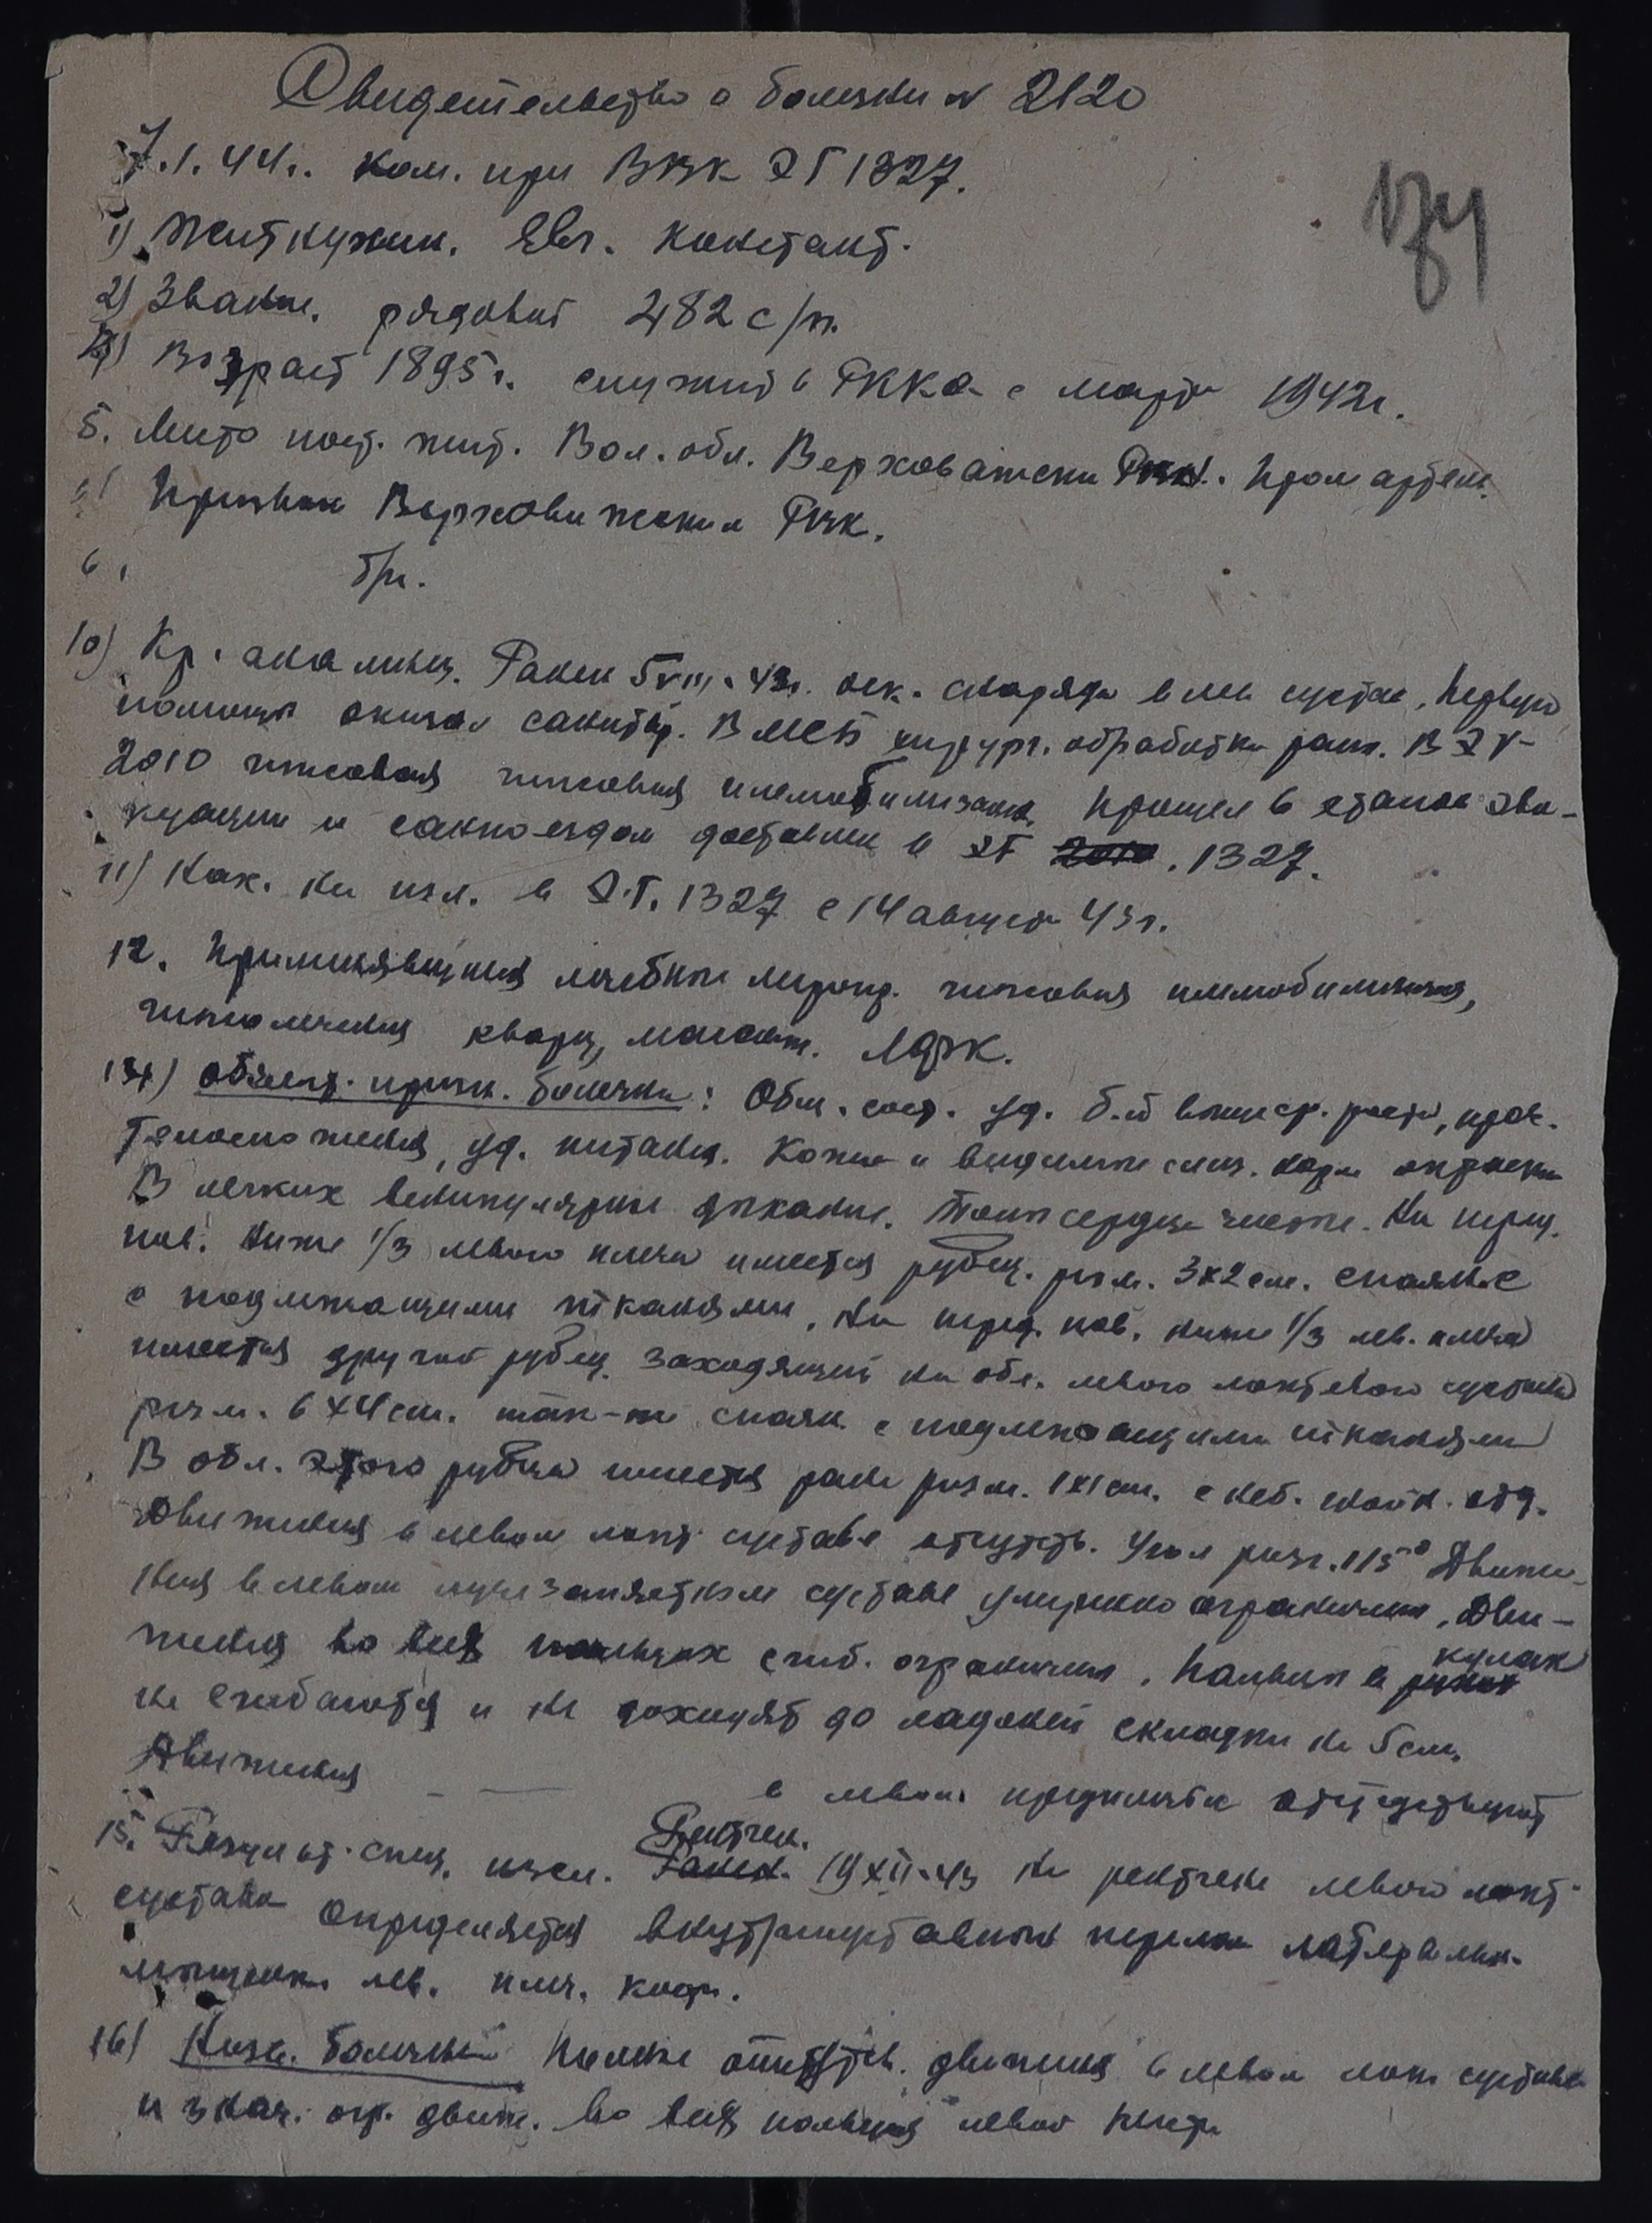 Свидетельство о болезни № 2120
7.1.44г. ком. при ВВК ЭГ 1327.
174
1) Житкухин. Евг. Констант.
2) Звание. рядовой 482 с/п.
Возраст 1895г. служит в РККА с марта 1942г.
5. Место пост. жит. Вол. обл. Верховажски Промартель.
Призван Верховажским РВК.
6. б/п.
10) Кр. анамнез. Ранен 5 VIII. 43г. оск. снаряда в лев сустав, Первую
помощь оказал санитар. В МСБ хирург. обработка ран. В ЭГ
2010 гипсовая гипсовая иммобилизация, Прошел 6 этапов эва-
куации и санпоездом доставлен в ЭГ 2010. 1327.
11) Нах. на изл. в Э.Г. 1327 с 14 августа 43г.
12. Применявшиеся лечебные мероп. гипсовая иммобилизация,
кварц, массаж. ЛФК.
13) Объект. призн. болезни: Общ. сост. уд. Б-й выше ср. роста, прав.
телосложения, уд. питания. Кожа и видимые слиз. норм окраски
В легких везикулярное дыхание. Тоны сердца чистые. На перед.
пов. ниже 1/3 левого плеча имеется рубец. разм. 3х2 см. спаян с
с подлежащими тканями, На перед. пов. ниже 1/3 лев. плеча
имеется другой рубец заходящий на обл. левого локтевого сустава
разм. 6х4 см. так-же спаян с подлежащими тканями
В обл. этого рубца имеется рана разм. 1х1 см. с неб. гнойн. отд.
Движения в левом локт. суставе отсутств. Угол разг. 115° Движе-
ния в левом лучезапястном суставе умеренно ограничены, Дви-
жения во всех пальцах сгиб. ограничены, Пальцы в кулак
не сгибаются и не доходят до ладоней складки на 5 см.
Движения — — в левом предплечье отсутствуют
15. Результ. спец. иссл. Рентген. 19 XII.43 На рентгене левого локт.
сустава определяется внутрисуставной перелом латеральн.
мыщелка лев. плеч. кости.
16) Назв. болезни Полное отсутств. движения в левом локт суставе
и знач. огр. движ. во всех пальцах левой кисти